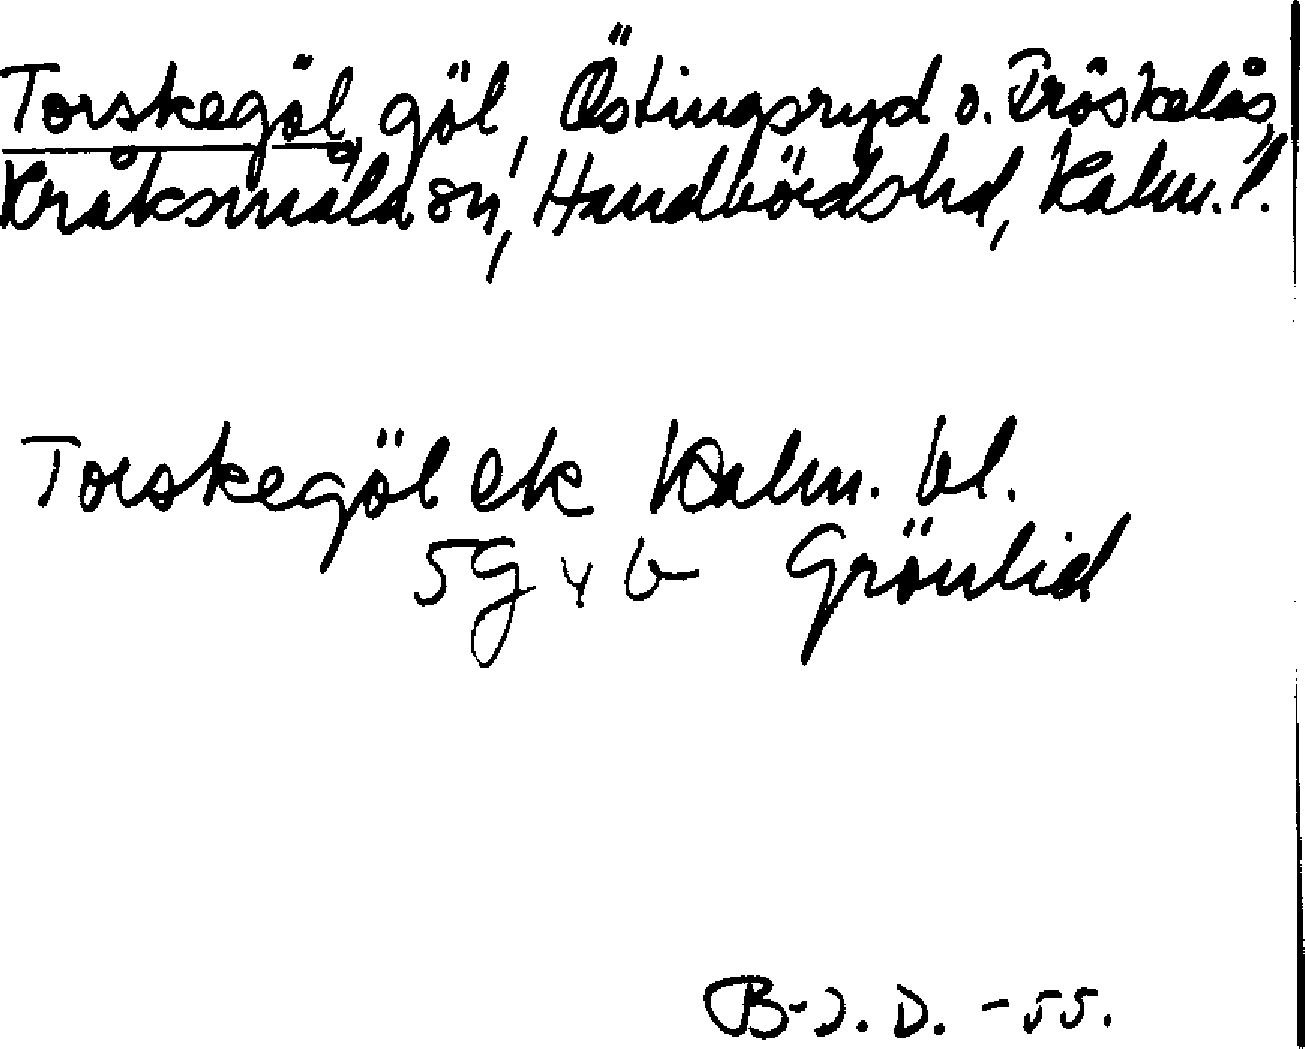 Torskegöl, göl, Östingsryd o. Tröskelås,
Kråksmåla sn, Handbörds hd, Kalm. l.
Torskegöl ek Kalm. bl.
5g y b Grönlid
B-J. D. -55.